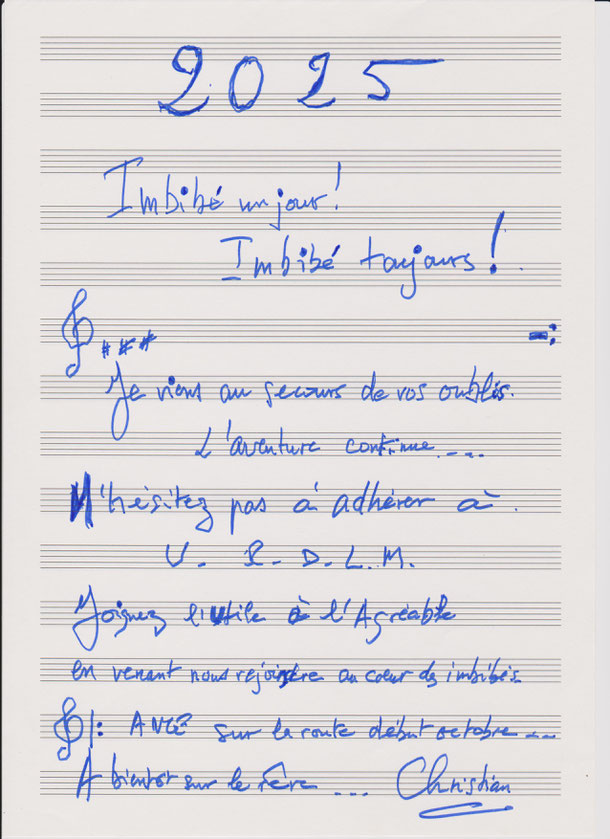 2025
Imbibé un jour !
Imbibé toujours !
Je viens au secours de vos oublis.
L'aventure continue....
N'hésitez pas à adhérer à.
V. R. D. L. M.
Joignez l'utile à l'Agréable
en venant nous rejoindre au cœur des imbibés.
sur la route début octobre ...
A bientôt sur le ... Christian